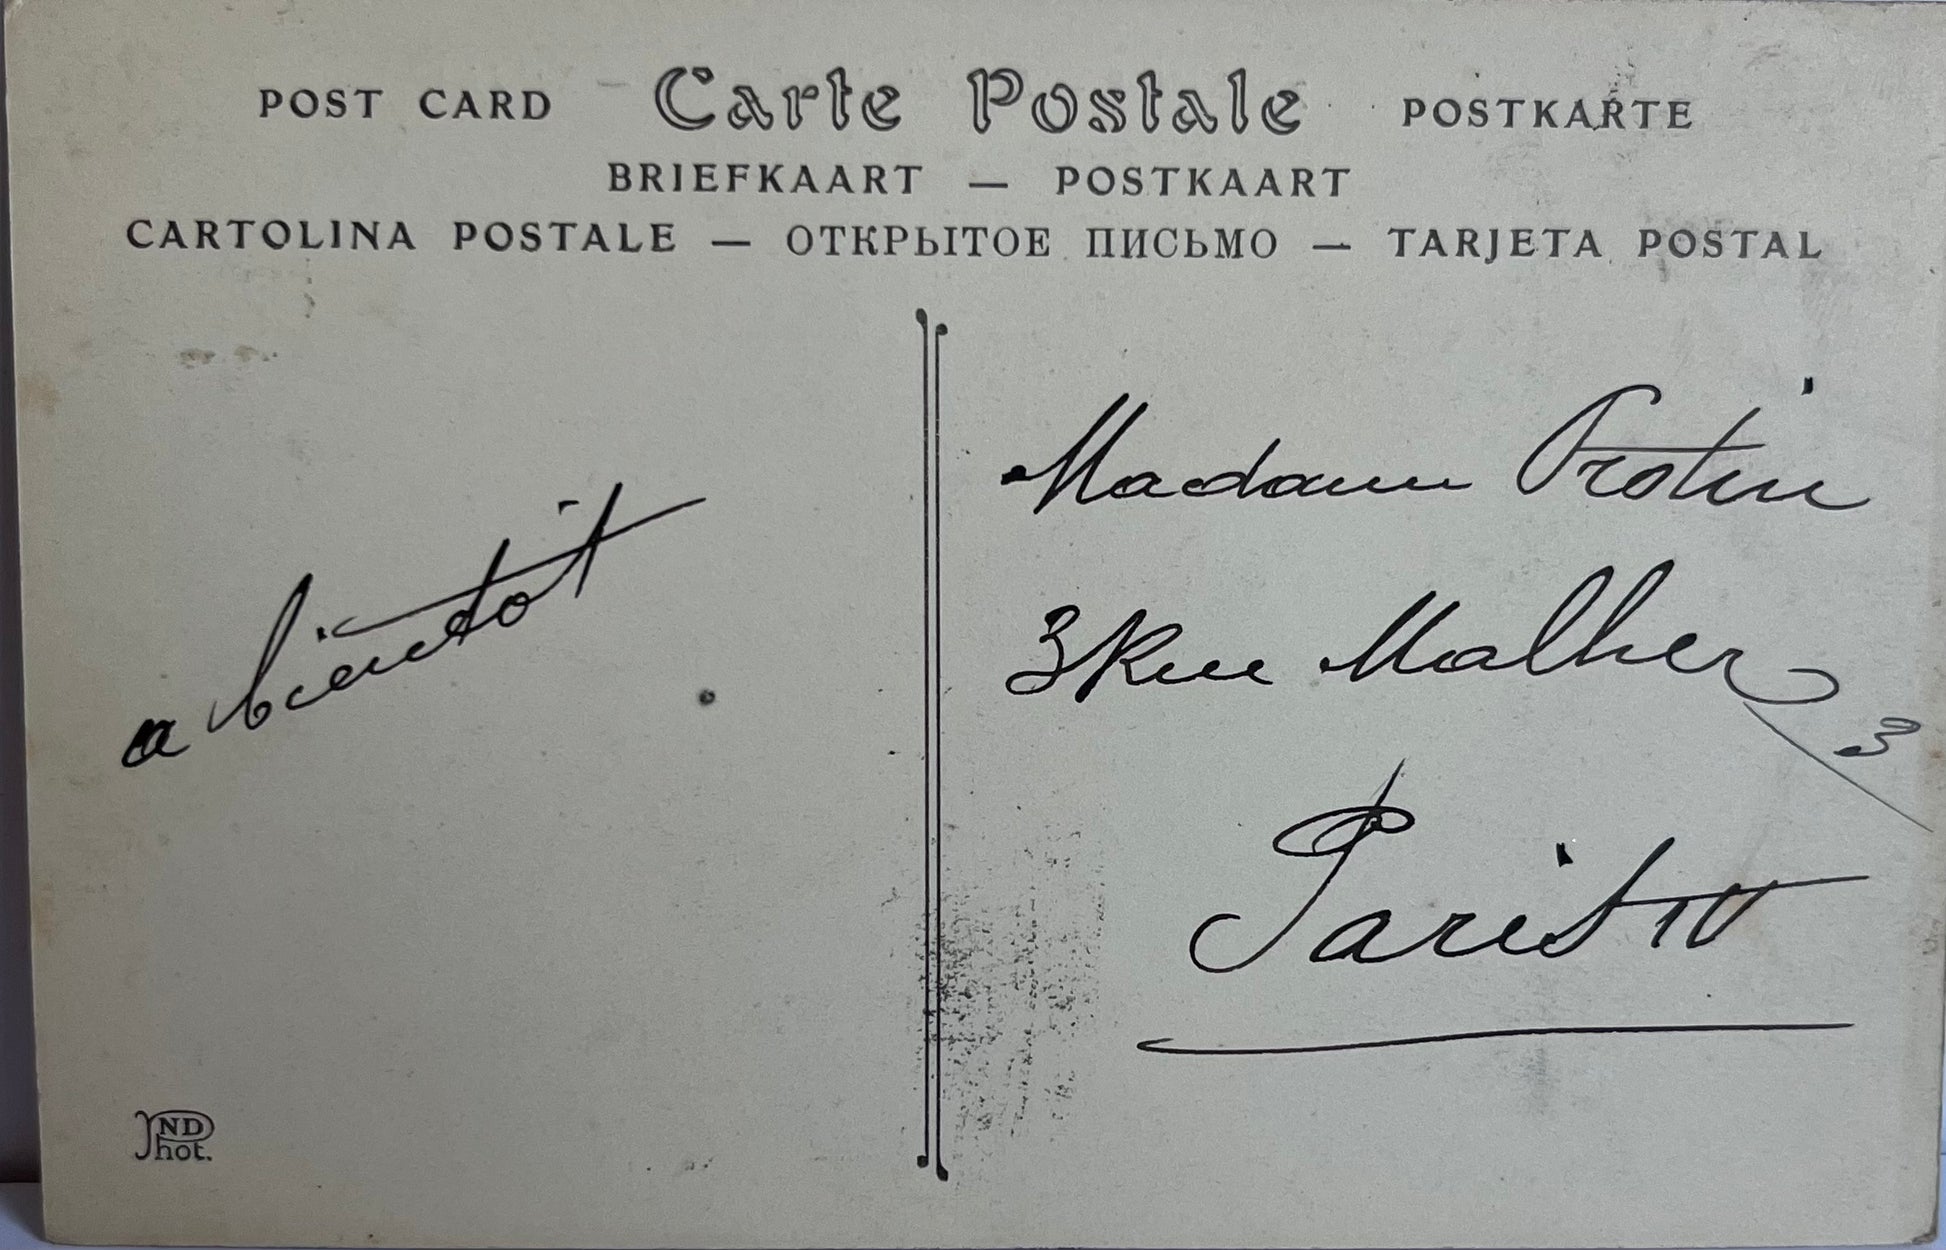 POST CARD Carte Postale POSTKARTE
BRIEFKAART — POSTKAART
CARTOLINA POSTALE — ОТКРЫТОЕ ПИСЬМО — TARJETA POSTAL
a bientôt
Madame Protin
3 Rue Malher
3
Paris IV
ND
Phot.